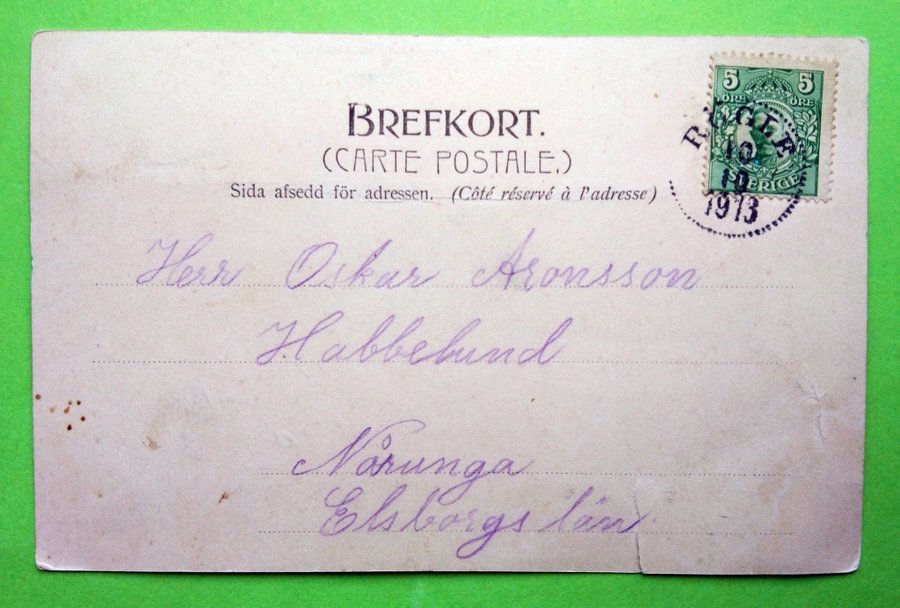 BREFKORT.
(CARTE POSTALE.)
Sida afsedd för adressen. (Côté réservé à l'adresse)
5 5
ÖRE ÖRE
SVERIGE
10
10
1913
Herr Oskar Aronsson
Habbelund
Nårunga
Elsborgs län